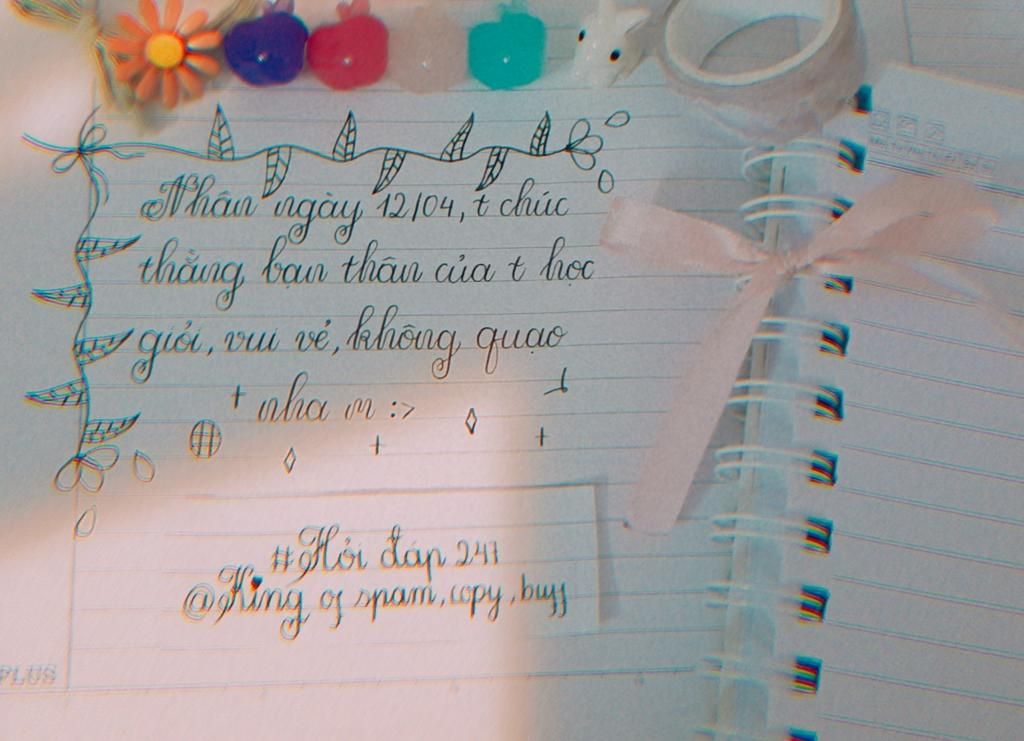 Nhân ngày 12/04, t chúc
thằng bạn thân của t học
giỏi, vui vẻ, không quạo
nha m :>
#Hỏi đáp 247
@King of spam, copy, buff
PLUS